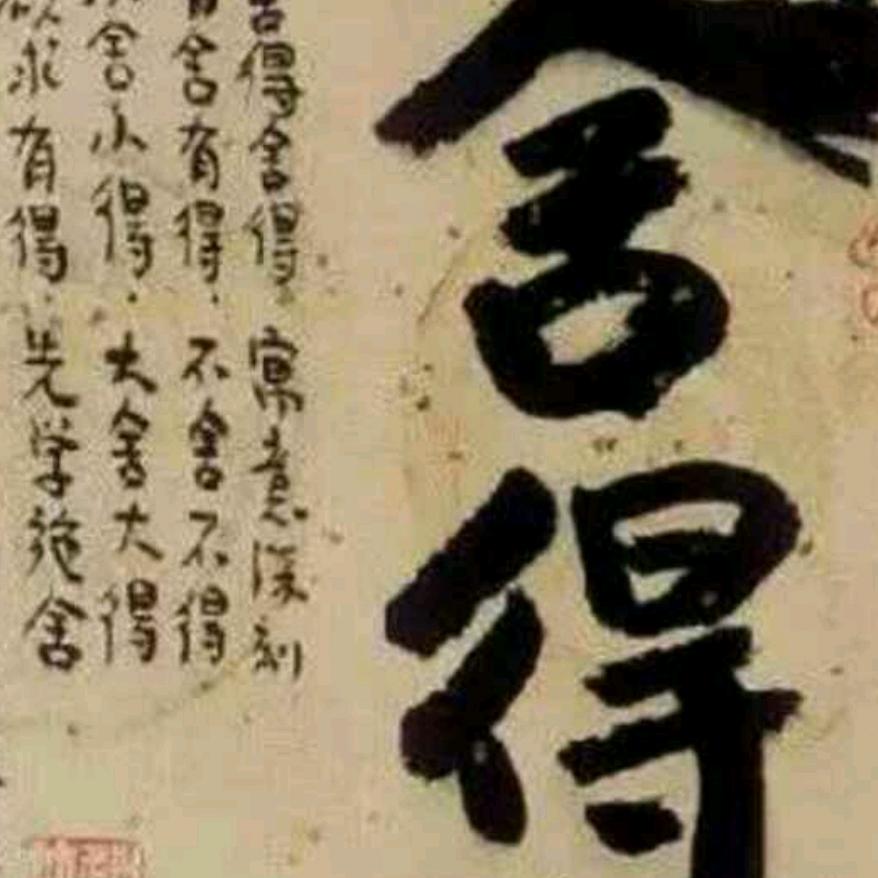 舍得
舍得舍得。寓意深刻
有舍有得，不舍不得
小舍小得，大舍大得
欲求有得，先学施舍